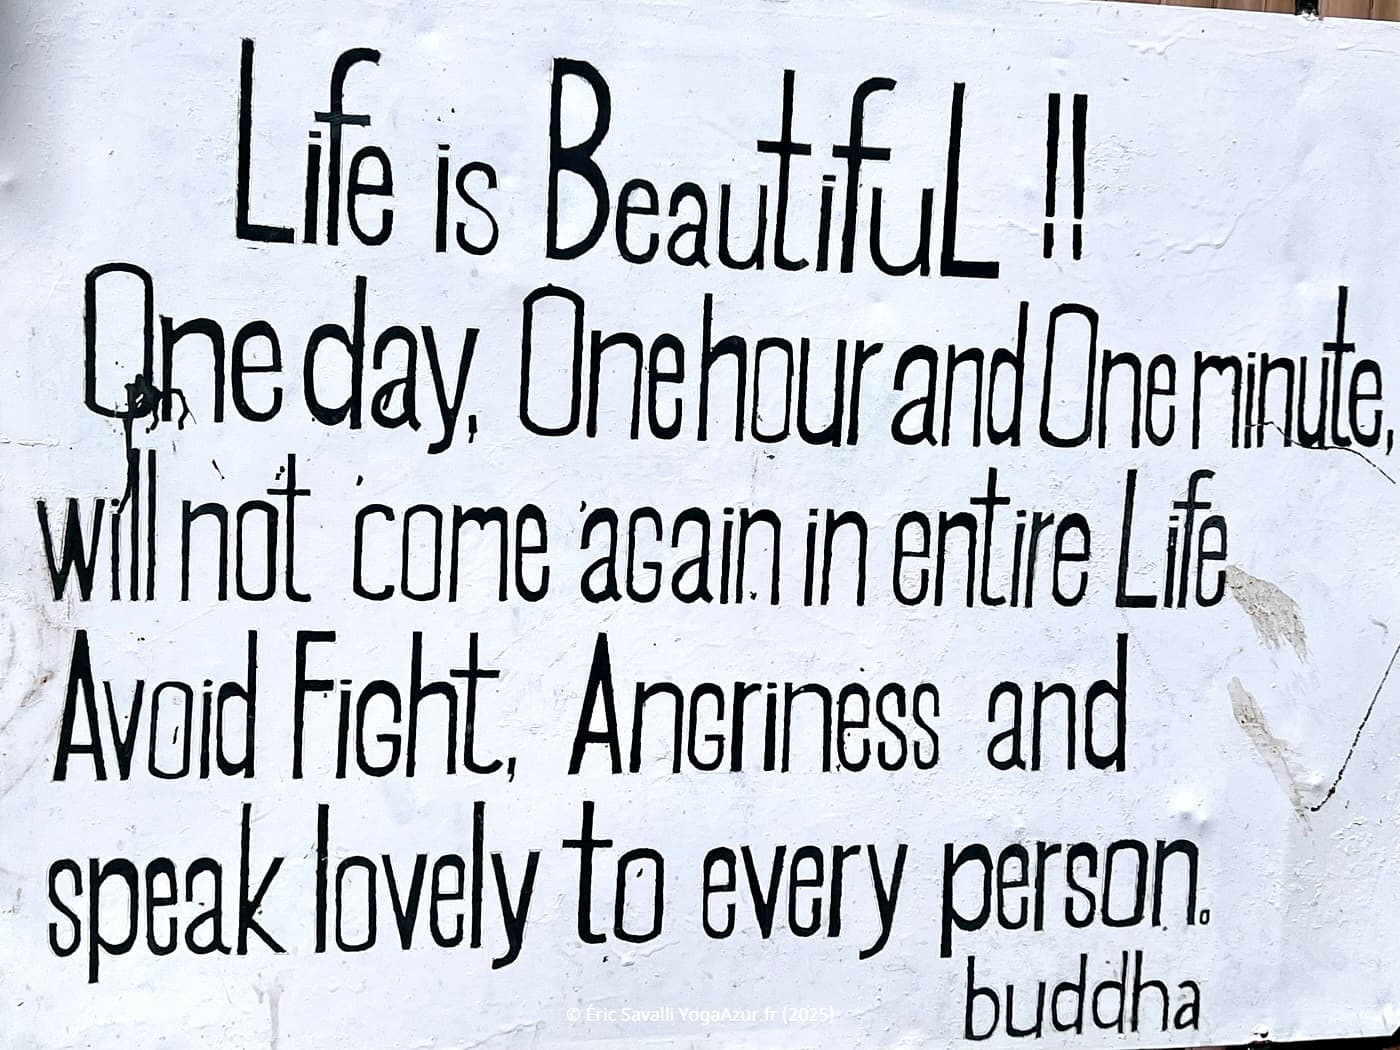 Life is BeautifuL !!
One day, One hour and One minute,
will not come again in entire Life
Avoid Fight, Angriness and
speak lovely to every person.
buddha
© Eric Savalli YogaAzur.fr (2025)